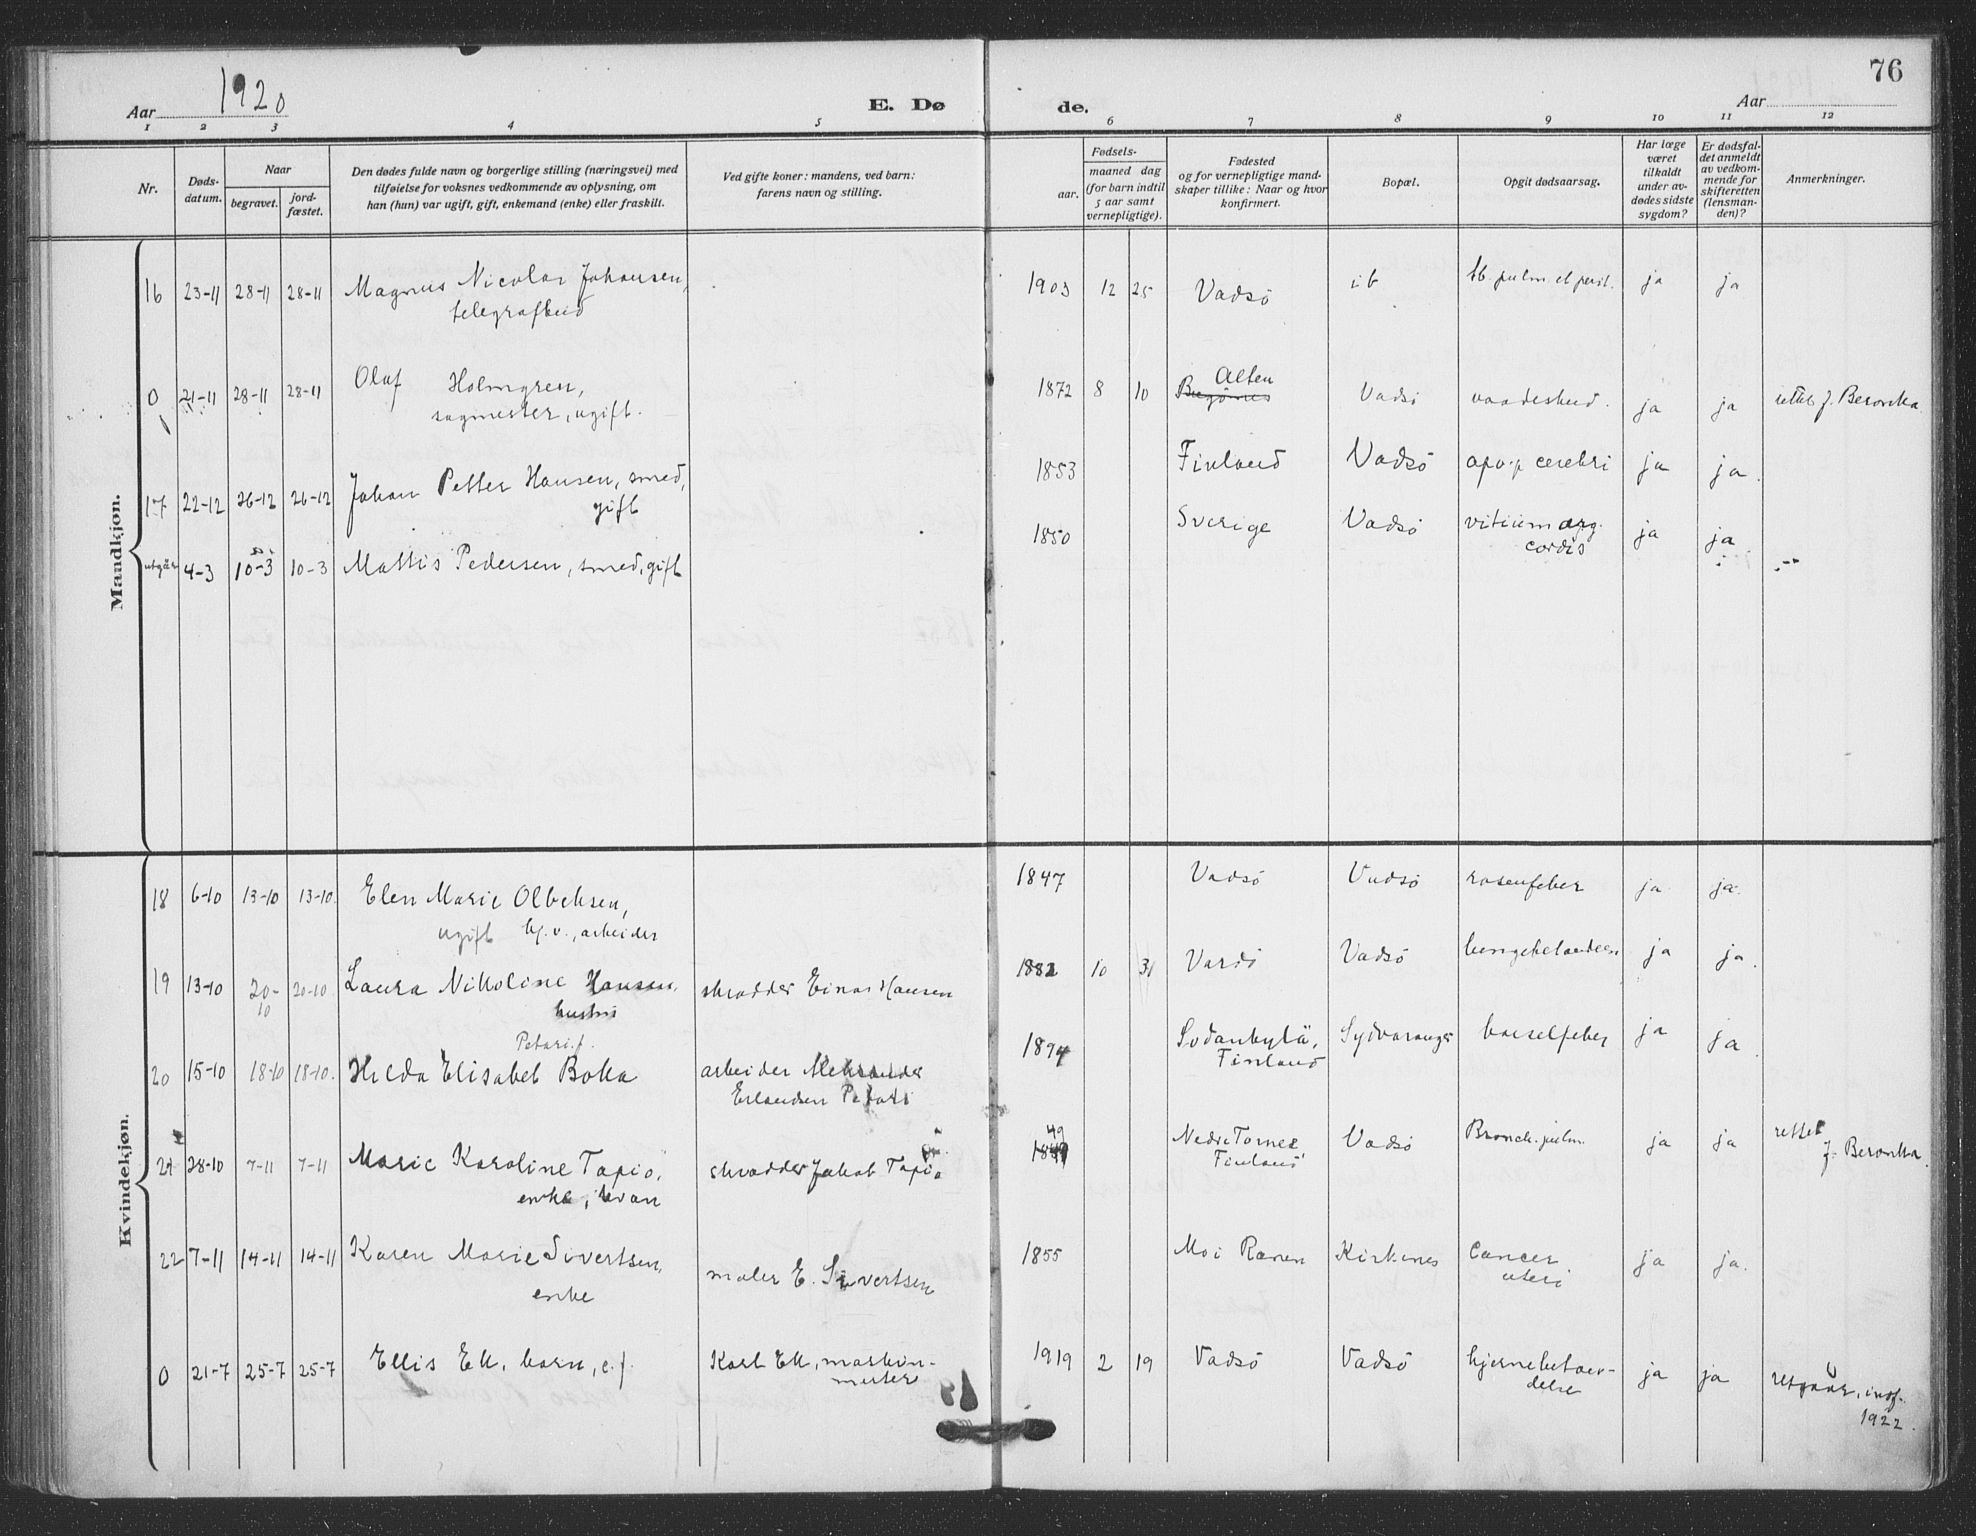 Aar 1920 E. Dø de. Aar 76
1 2 3 4 5 6 7 8 9 10 11 12
Nr.
Døds-
datum.
Naar
begravet.
jord-
fæstet.
Den dødes fulde navn og borgerlige stilling (næringsvei) med
tilføielse for voksnes vedkommende av oplysning, om
han (hun) var ugift, gift, enkemand (enke) eller fraskilt.
Ved gifte koner: mandens, ved barn:
farens navn og stilling.
Fødsels-
aar.
maaned dag
(for barn indtil
5 aar samt
vernepligtige).
Fødested
og for vernepligtige mand-
skaper tillike: Naar og hvor
konfirmert.
Bopæl.
Opgit dødsaarsag.
Har læge
været
tilkaldt
under av-
dødes sidste
sygdom?
Er dødsfal-
det anmeldt
av vedkom-
mende for
skifteretten
(lensman-
den)?
Anmerkninger.
Mandkjøn.
16 23-11 28-11 28-11 Magnus Nicolai Johansen, 1903 12 25 Vadsö ib tb. pulm. et perit. ja ja
telegrafbud
0 21-11 28-11 28-11 Olaf Holmgren, 1872 8 10 Bugönes Alten Vadsö vaadeskud. ja ja rettet f. Beronka
sagmester, ugift.
17 22-12 26-12 26-12 Johan Petter Hansen, smed, 1853 Finland Vadsö apop cerebri ja ja.
gift
utgår 4-3 10-3 10-3 Mattis Pedersen, smed, gift 1850 Sverige Vadsö vitium org. ja ja
cordis
Kvindekjøn.
18 6-10 13-10 13-10. Elen Marie Olbeksen, 1847 Vadsö Vadsö rosenfeber ja ja.
ugift hj. v., arbeider
19 13-10 20-10 20-10 Laura Nikoline Hansen, skrædder Einar Hansen 1882 10 31 Vardö Vadsö ja ja.
hustru
Petari f.
20 15-10 18-10 18-10. Hilda Elisabet Boka arbeider Aleksander 1894 Sodankylä, Sydvaranger barselfeber ja ja
Erlandsen Petari Finland
21 28-10 7-11 7-11 Marie Karoline Tapio, skrædder Jakob Tapio 1849 49 Nedre Tornea Vadsö Bronch. pulm. ja ja rettet
enke, kvæn Finland f. Beronka.
22 7-11 14-11 14-11 Karen Marie Sivertsen, maler E. Sivertsen 1855 Moi Ranen Kirkenes Cancer ja ja.
enke uteri
0 21-7 25-7 25-7 Ellis Ek, barn, e.f. Karl Ek, maskin- 1919 2 19 Vadsö Vadsö hjernebetæn- ja ja utgaar, inof.
mester delse 1922.